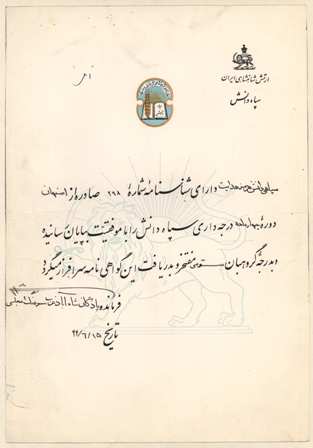 ارتش شاهنشاهی ایران
سپاه دانش
سپاهی دانش هدایت دارای شناسنامهٔ شمارهٔ ۲۹۸ صادره از اصفهان
دورهٔ چهارماهه درجه داری سپاه دانش را با موفقیت بپایان رسانیده
و بدرجهٔ گروهبان سومی مفتخر و بدریافت این گواهی نامه سرافراز میگردد
فرمانده پادگان
تاریخ ۴۲/۶/۱۵